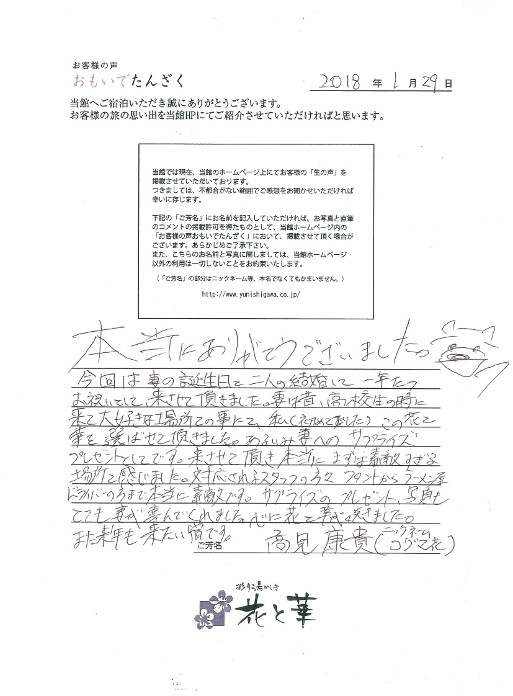 お客様の声
おもいでたんざく
2018 年 1 月 29 日
当館へご宿泊いただき誠にありがとうございます。
お客様の旅の思い出を当館HPにてご紹介させていただければと思います。
当館では現在、当館のホームページ上にてお客様の「生の声」を
掲載させていただいております。
つきましては、不都合がない範囲でご感想をお聞かせいただければ
幸いに存じます。
下記の「ご芳名」にお名前を記入していただければ、お写真と直筆
のコメントの掲載許可を得たものとして、当館ホームページ内の
「お客様の声おもいでたんざく」において、掲載させて頂く場合が
ございます。あらかじめご了承下さい。
また、こちらのお名前と写真に関しましては、当館ホームページ
以外の利用は一切しないことをお約束いたします。
（「ご芳名」の部分はニックネーム等、本名でなくてもかまいません。）
http://www.yunishigawa.co.jp/
本当にありがとうございました。
今回は妻の誕生日と二人の結婚して一年たつ
お祝いとして、来させて頂きました。妻は昔、高校生の時に
来て大好きな場所との事にて、私 この花と
華を選ばせて頂きました。 妻へのサプライズ
プレゼントとしてです。来させて頂き本当に まずは素敵すぎる
場所と感じました。対応されるスタッフの方々 フロントからラーメン屋
ドライバーの方まで本当に素敵です。サプライズのプレゼント、写真も
とても妻が喜んでくれました。心に花と華が咲きました。
また来年も来たい宿です。
ご芳名 高見 康貴（ニックネーム
花と華